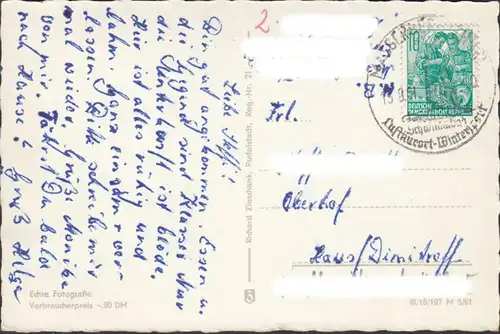 2
Liebe Steffi!
Bin gut angekommen. Essen u.
die Gegend sind Klasse. Nur
die Unterkunft ist blöde.
Hier ist alles ruhig und
lahm. Ganz einsam + ver-
lassen. Bitte schreibe mir
mal wieder. Grüße Monika
von mir. Fährst Du bald
nach Hause? Gruß Helga
Echte Fotografie
Verbraucherpreis -,20 DM
Richard Zieschank, Rudolstadt, Reg.-Nr. 71
10
DEUTSCHE
DEMOKRATISCHE REPUBLIK
Schwimmbad
Luftkurort-Wintersport
Frl.
Oberhof
Haus/Dimitroff
III/18/197 M 5/61